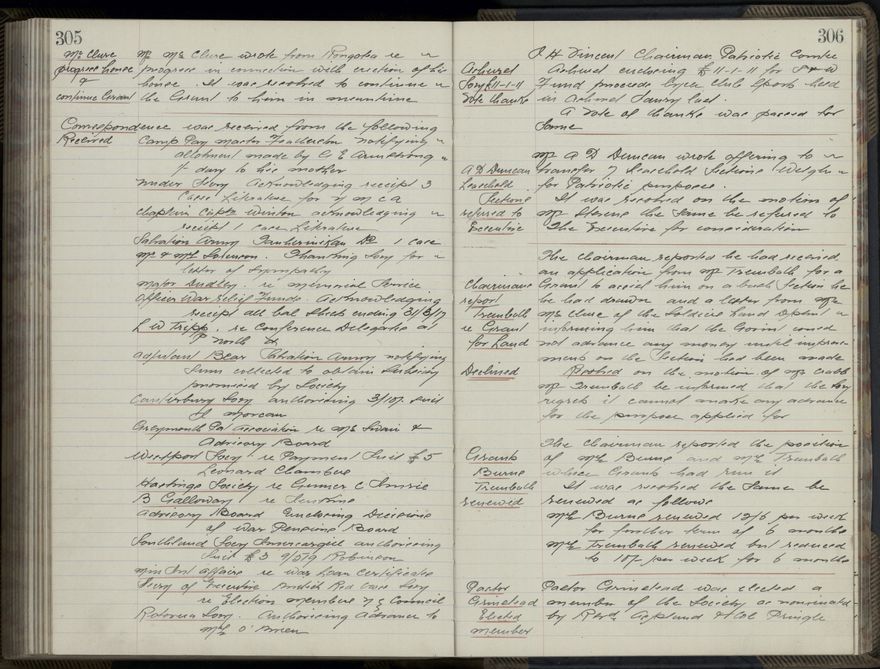 305
Mc Clure
progress house
&
continue Grant
Mr Mc Clure wrote from Rongotea re
progress in connection with erection of his
house. It was resolved to continue
the Grant to him in meantime
Correspondence was received from the following
Received
Camp Pay master Featherston notifying
allotment made by C E Armstrong
/ day to his mother
Under Secy Acknowledging receipt 3
Cases Literature for Y M C A
Chaplain Capt Winton acknowledging
receipt 1 case Literature
Salvation Army Do 1 case
Mr & Mrs Sorenson. Thanking Socy for
letter of sympathy
Major Dudley. re memorial Service
Officer War Relief Funds. Acknowledging
receipt all bal sheets ending 31/3/17
L W Tripp. re Conference Delegates at
North &
Adjutant Bear Salvation Army notifying
sum collected to obtain Subsidy
promised by Society
Canterbury Socy authorising 3/10/-
Greymouth Pat Association re Mrs &
Advisory Board
Westport Socy re Payment £5
Leonard Chambers
Hastings Society re Gunner C
B Galloway re
Advisory Board Enclosing Decisions
of War Pensions Board
Southland Socy Invercargill authorising
£3 Robinson
Min Int Affairs re war loan certificates
Secy of Executive British Red Cross Socy
re Election members N Z Council
Rotorua Socy. Authorising Advance to
Mrs O'Brien
306
Ashurst
Socy £11-1-11
Vote thanks
J H Vincent Chairman Patriotic Comtee
Ashurst enclosing £11-1-11 for S & W
Fund proceeds Cycle Club Sports held
in Ashurst Saury last.
A vote of thanks was passed for
same
A D Duncan
Leasehold
Sections
refered to
Executive
Mr A D Duncan wrote offering to
transfer 7 Leasehold Sections
for Patriotic purposes.
It was resolved on the motion of
Mr the same be refered to
the Executive for consideration
Chairmans
report
Trembath
re Grant
for Land
Declined
The Chairman reported he had received
an application from Mr Trembath for a
Grant to assist him on a bush section he
he had drawn and a letter from Mr
Mc Clure of the Soldiers Land Deptmt
informing him that the Govmt could
not advance any money until improve
ments on the Section had been made
Resolved on the motion of Mr Crabb
Mr Trembath be informed that the Socy
regret it cannot make any advance
for the purpose applied for
Grants
Burne
Trembath
renewed
The Chairman reported the position
of Mrs Burne and Mrs Trembath
whose Grants had run out
It was resolved the same be
renewed as follows
Mrs Burne renewed 12/6 per week
for further term of 6 months
Mrs Trembath renewed but reduced
to 10/- per week for 6 months
Pastor
Grinstead
Elected
member
Pastor Grinstead was elected a
member of the Society as nominated
by Revd Aspland & Col Pringle